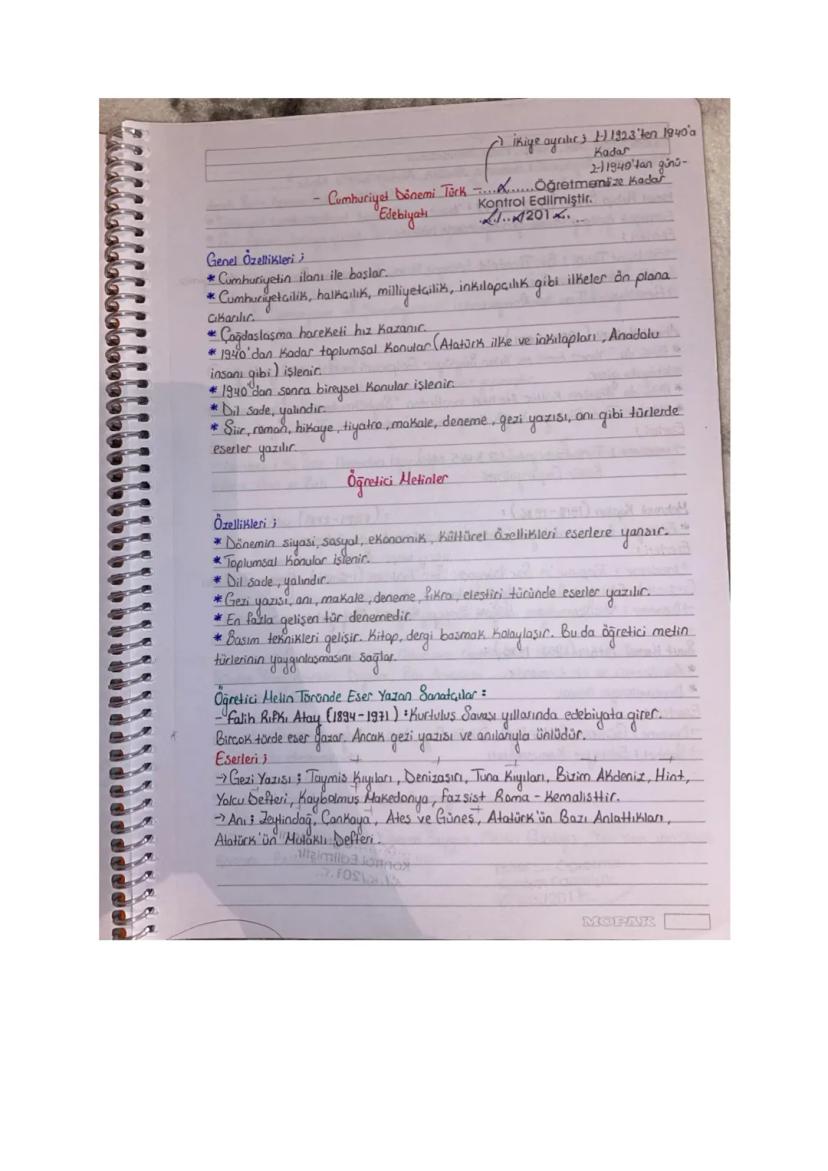 → ikiye ayrılır ; 1-) 1923'ten 1940'a
Kadar
2-) 1940'tan günü-
müze Kadar
- Cumhuriyet Dönemi Türk -
Edebiyatı
Öğretmen
Kontrol Edilmiştir.
201
Genel Özellikleri ;
* Cumhuriyetin ilanı ile başlar.
* Cumhuriyetcilik, halkcılık, milliyetçilik, inkılapçılık gibi ilkeler ön plana
çıkarılır.
* Çağdaslasma hareketi hız kazanır.
* 1940'dan Kadar toplumsal Konular (Atatürk ilke ve inkılapları, Anadolu
insanı gibi) işlenir.
* 1940'dan sonra bireysel Konular işlenir.
* Dil sade, yalındır.
* Siir, roman, hikaye, tiyatro, makale, deneme, gezi yazısı, anı gibi türlerde
eserler yazılır.
Öğretici Metinler
Özellikleri ;
* Dönemin siyasi, sosyal, ekonomik, Kültürel özellikleri eserlere yansır.
* Toplumsal Konular işlenir.
* Dil sade, yalındır.
* Gezi yazısı, anı, makale, deneme, fıkra, elestiri türünde eserler yazılır.
* En fazla gelişen tür denemedir.
* Basım teknikleri gelişir. Kitap, dergi basmak kolaylaşır. Bu da öğretici metin
türlerinin yaygınlaşmasını sağlar.
Öğretici Metin Türünde Eser Yazan Sanatçılar :
- Falih Rıfkı Atay (1894-1971) : Kurtulus Savası yıllarında edebiyata girer.
Bircok türde eser yazar. Ancak gezi yazısı ve anılarıyla ünlüdür.
Eserleri ;
→ Gezi Yazısı ; Taymis Kıyıları, Denizaşırı, Tuna Kıyıları, Bizim Akdeniz, Hint,
Yolcu Defteri, Kaybolmuş Makedonya, Fazsist Roma - Kemalisttir.
→ Anı ; Zeytindağ, Cankaya, Ates ve Güneş, Atatürk'ün Bazı Anlattıkları,
Atatürk'ün Mutaklı Defteri.
MOPAK